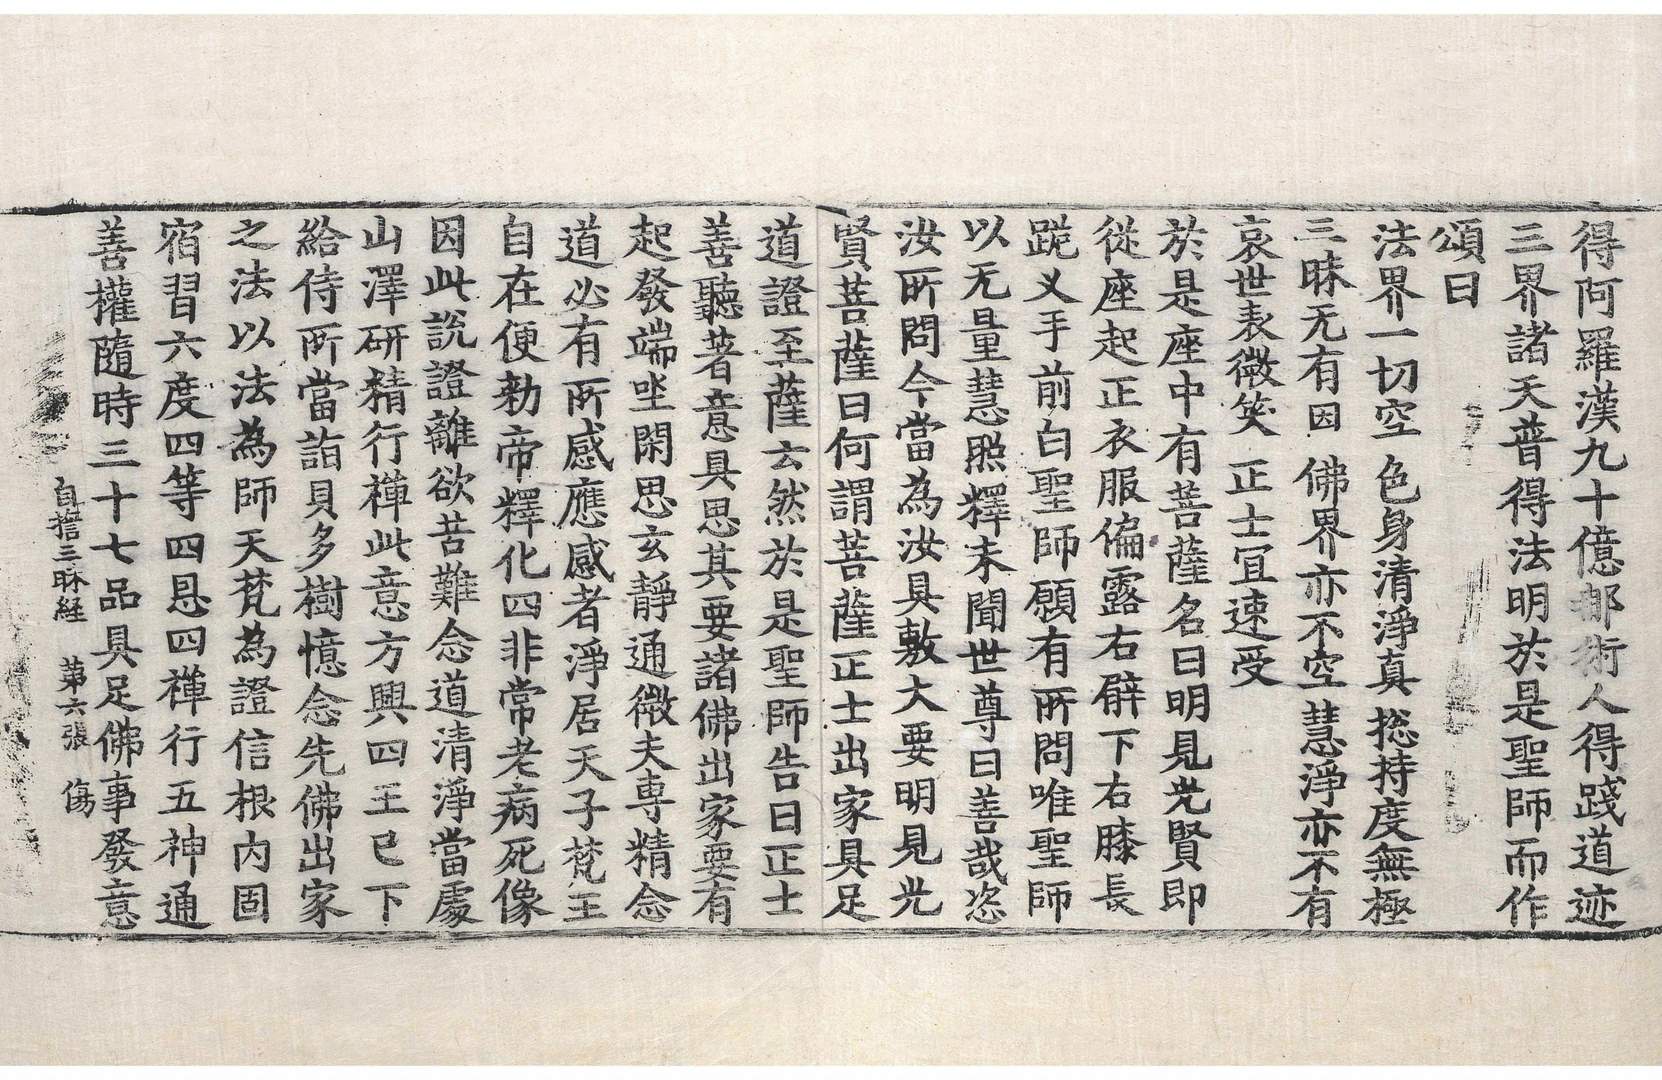 得阿羅漢九十億那術人得踐道迹
三界諸天普得法明於是聖師而作
頌曰
法界一切空 色身清淨真 捴持度無極
三昧无有因 佛界亦不空 慧淨亦不有
哀世表微笑 正士宜速受
於是座中有菩薩名曰明見光賢即
從座起正衣服偏露右臂下右膝長
跪叉手前白聖師願有所問唯聖師
以无量慧照釋未聞世尊曰善哉恣
汝所問今當為汝具敷大要明見光
賢菩薩曰何謂菩薩正士出家具足
道證至薩云然於是聖師告曰正士
善聽著意具思其要諸佛出家要有
起發端坐閑思玄靜通微夫専精念
道必有所感應感者淨居天子梵王
自在便勑帝釋化四非常老病死像
因此說證離欲苦難念道清淨當處
山澤研精行禪此意方興四王已下
給侍所當詣貝多樹憶念先佛出家
之法以法為師天梵為證信根內固
宿習六度四等四恩四禪行五神通
善權隨時三十七品具足佛事發意
自誓三昧経 第六張 傷